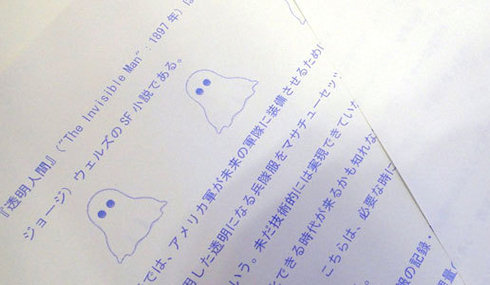 『透明人間』("The Invisible Man": 1897年)
ジョージ)ウェルズのSF小説である。
では、アメリカ軍が未来の軍隊に装備させるため
用した透明になる兵隊服をマサチューセッツ
いう。未だ技術的には実現できていた
できる時代が来るかも知れな
こちらは、必要な時に
服の記録・